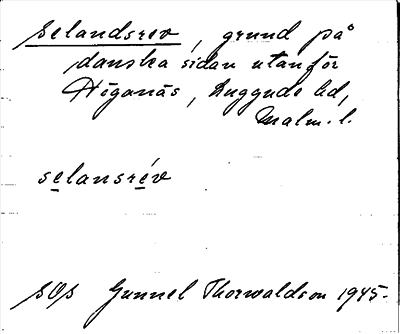 Selandsrev, grund på
danska sidan utanför
Höganäs, Luggude hd,
Malm. l.
selansrév
sOs Gunnel Thorwaldson 1945.